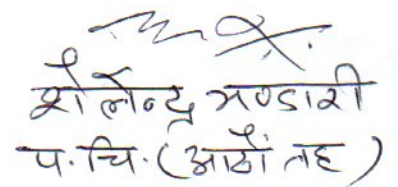 शैलेन्द्र भण्डारी
प.चि.(आठौं तह)